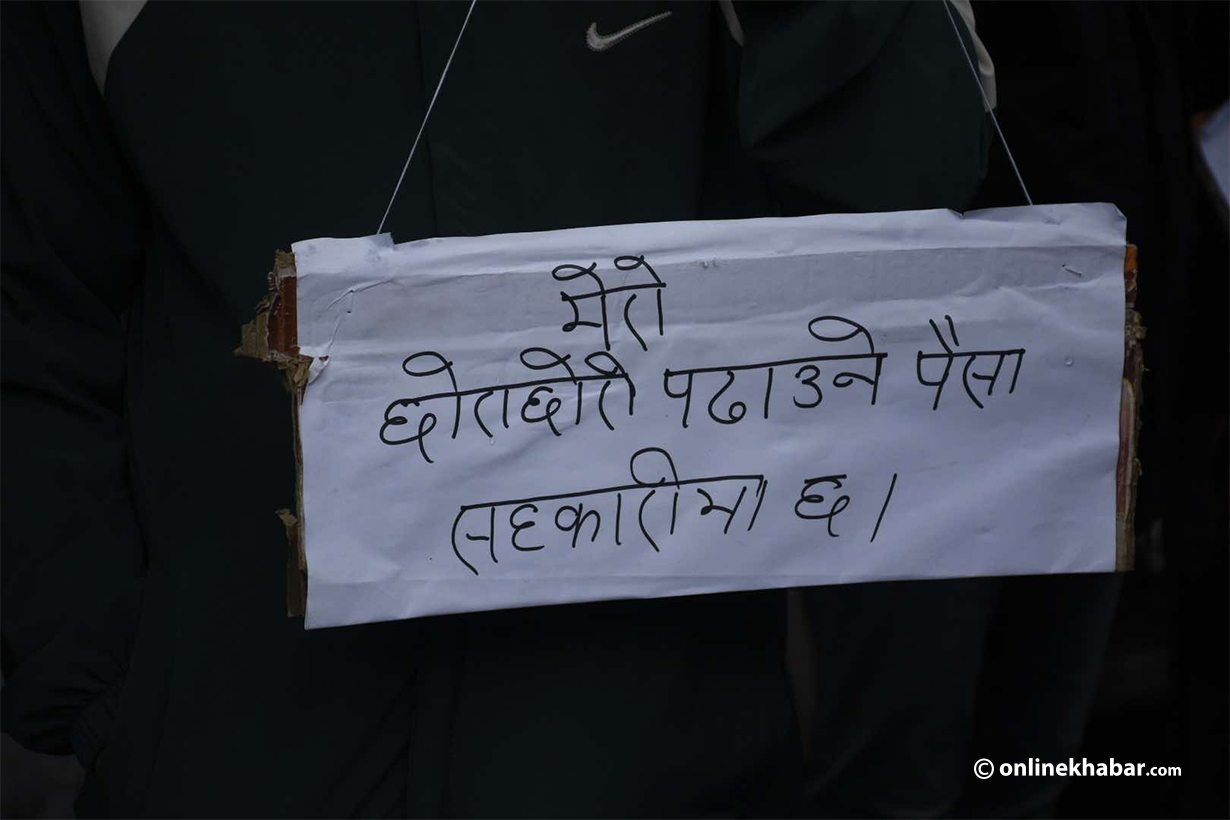 मेरो
छोराछोरी पढाउने पैसा
सहकारीमा छ।
© onlinekhabar.com